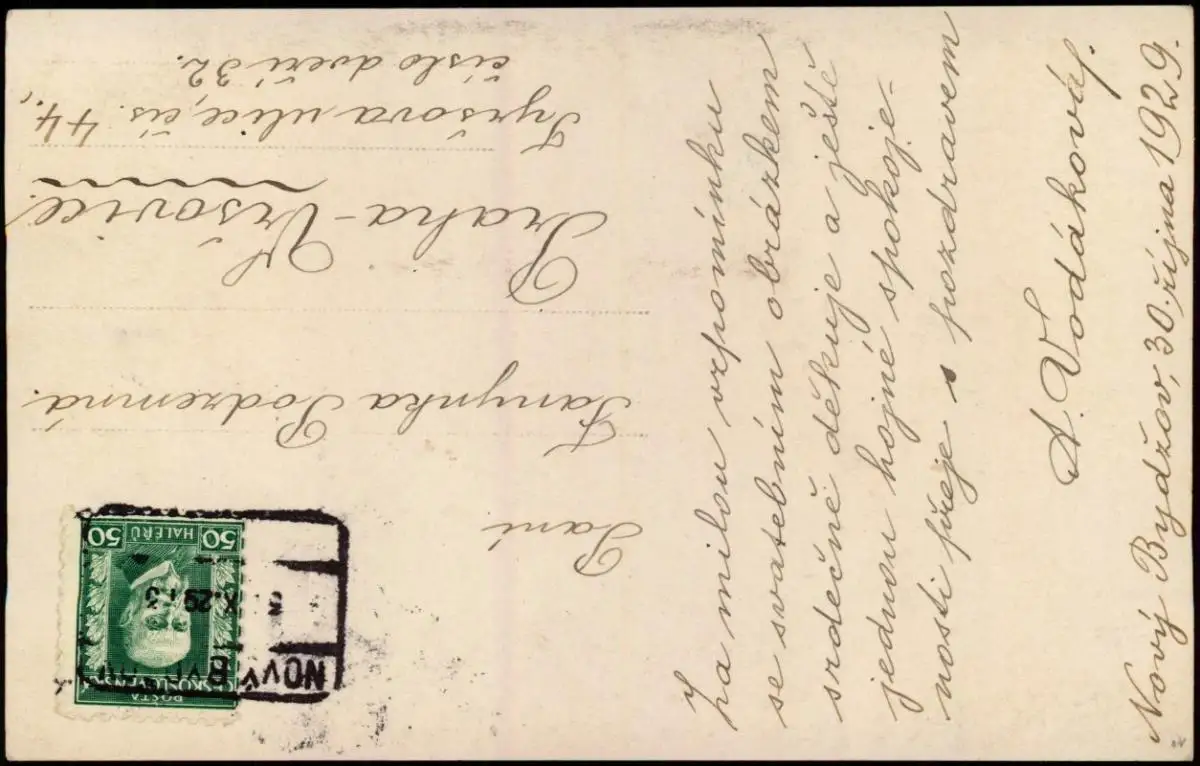 Za milou vzpomínku
se svatebním obrázkem
srdečně děkuje a ještě
jednou hojné spokoje-
nosti přeje s pozdravem
A. Vodáková.
Nový Bydžov, 30. října 1929.
Paní
Fanynka Podzemná.
Praha-Vršovice.
Tyršova ulice, čís. 44.,
číslo dveří 32.
POŠTA
ČESKOSLOVENSKÁ
50 HALÉŘŮ 50
NOVÝ
X.29